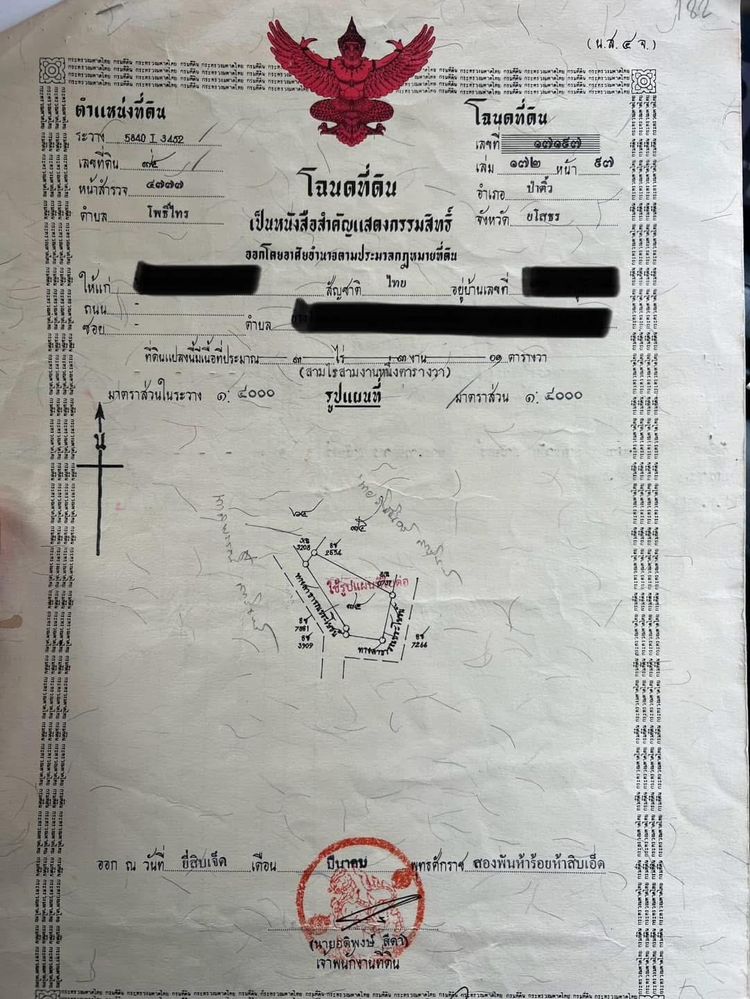 182
(น.ส.๔ จ.)
ตำแหน่งที่ดิน
ระวาง 5840 I 3452
เลขที่ดิน ๙๕
หน้าสำรวจ ๔๗๗๗
ตำบล โพธิ์ไทร
โฉนดที่ดิน
เลขที่ ๑๗๑๙๗
เล่ม ๑๗๒ หน้า ๙๗
อำเภอ ป่าติ้ว
จังหวัด ยโสธร
โฉนดที่ดิน
เป็นหนังสือสำคัญแสดงกรรมสิทธิ์
ออกโดยอาศัยอำนาจตามประมวลกฎหมายที่ดิน
ให้แก่ สัญชาติ ไทย อยู่บ้านเลขที่
ถนน -
ซอย - ตำบล
ที่ดินแปลงนี้มีเนื้อที่ประมาณ ๓ ไร่ ๓ งาน ๐๑ ตารางวา
(สามไร่สามงานหนึ่งตารางวา)
มาตราส่วนในระวาง ๑: ๔๐๐๐ รูปแผนที่ มาตราส่วน ๑: ๔๐๐๐
น
3203
2534
ใช้รูปแผนที่ใบต่อ
ทางสาธารณประโยชน์
7881
3909
ทางสาธารณประโยชน์
7266
ออก ณ วันที่ ยี่สิบเจ็ด เดือน มีนาคม พุทธศักราช สองพันห้าร้อยห้าสิบเอ็ด
(นายอดิพงษ์ สีดา)
เจ้าพนักงานที่ดิน